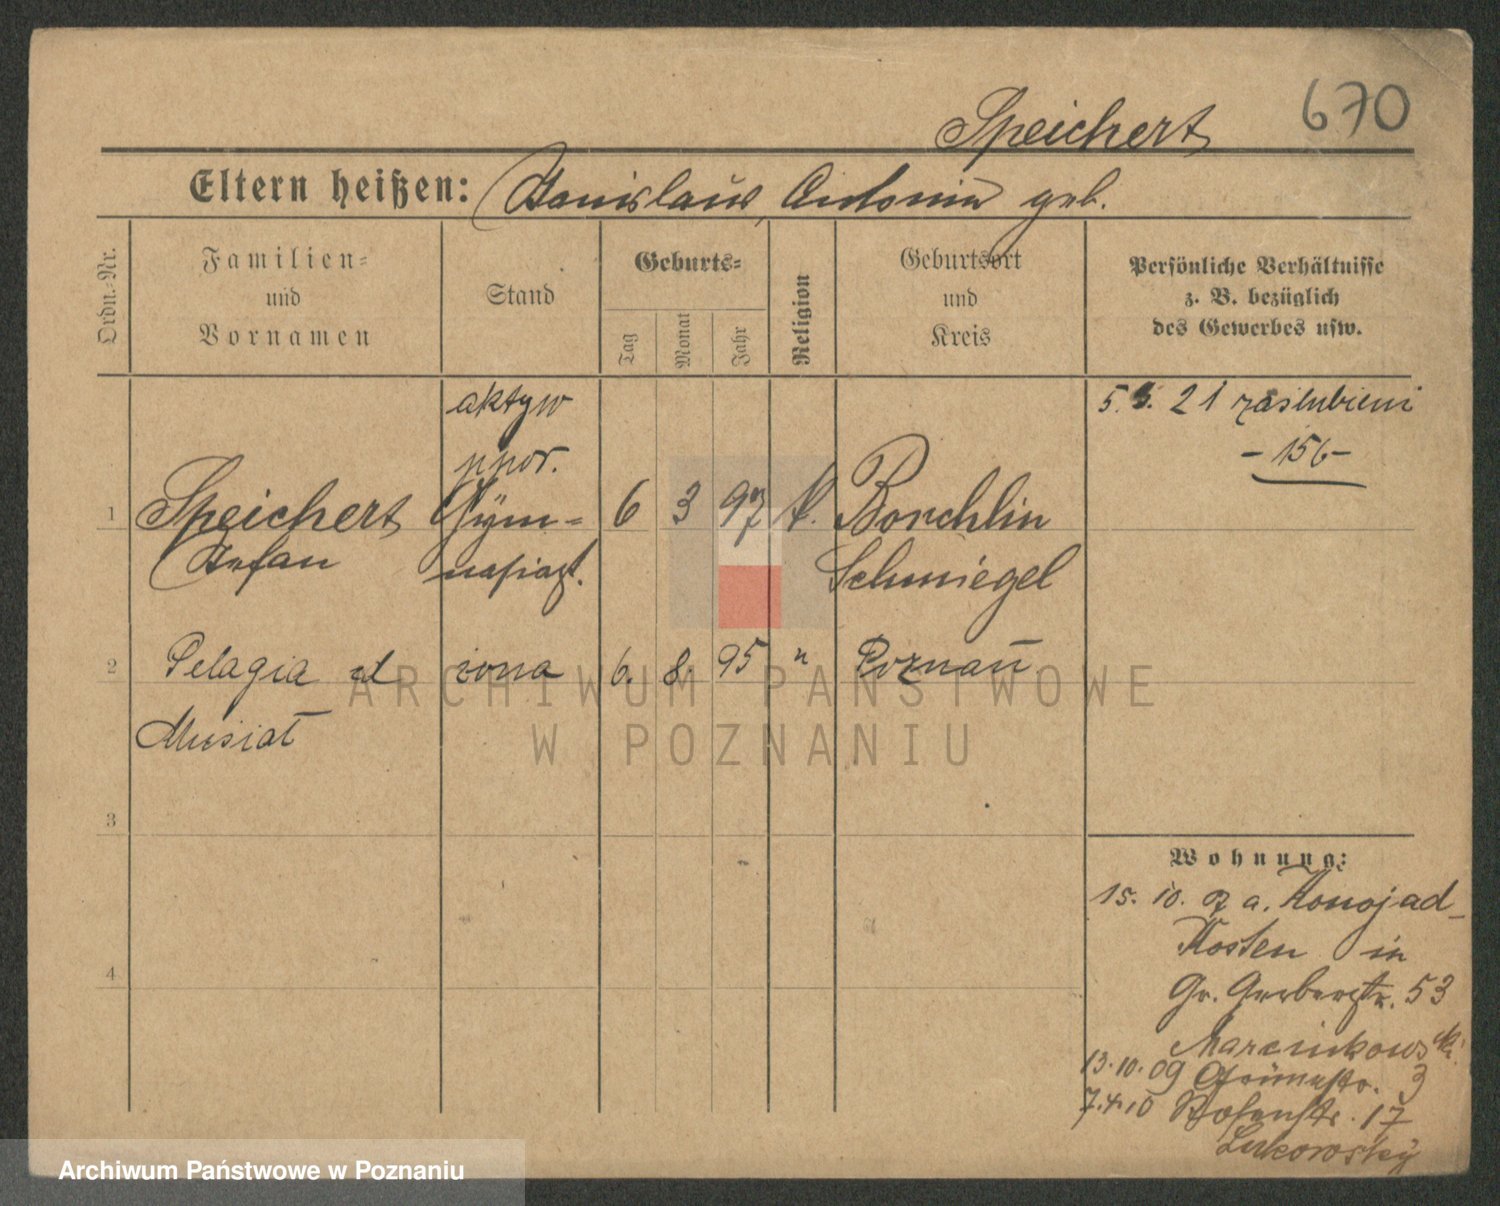 Speichert 670
Eltern heißen: Stanislaus, Antonie geb.
Ordn.-Nr.
Familien-
und
Vornamen
Stand
Geburts-
Tag
Monat
Jahr
Religion
Geburtsort
und
Kreis
Persönliche Verhältnisse
z. B. bezüglich
des Gewerbes usw.
aktyw
ppor.
5. 21 zaślubieni
- 156 -
1 Speichert Gym- 6 3 97 k. Boruchlin
Stefan nasiast. Schmiegel
2 Pelagia zd żona 6. 8. 95 " Poznań
Musiał
3
4
Wohnung:
15. 10. 07 a. Konojad-
Kosten in
Gr. Gerberstr. 53
Marcinkowski
13.10.09 Grünestr. 3
7.4.10 Posenstr. 17
Lukorosky
ARCHIWUM PAŃSTWOWE
W POZNANIU
Archiwum Państwowe w Poznaniu